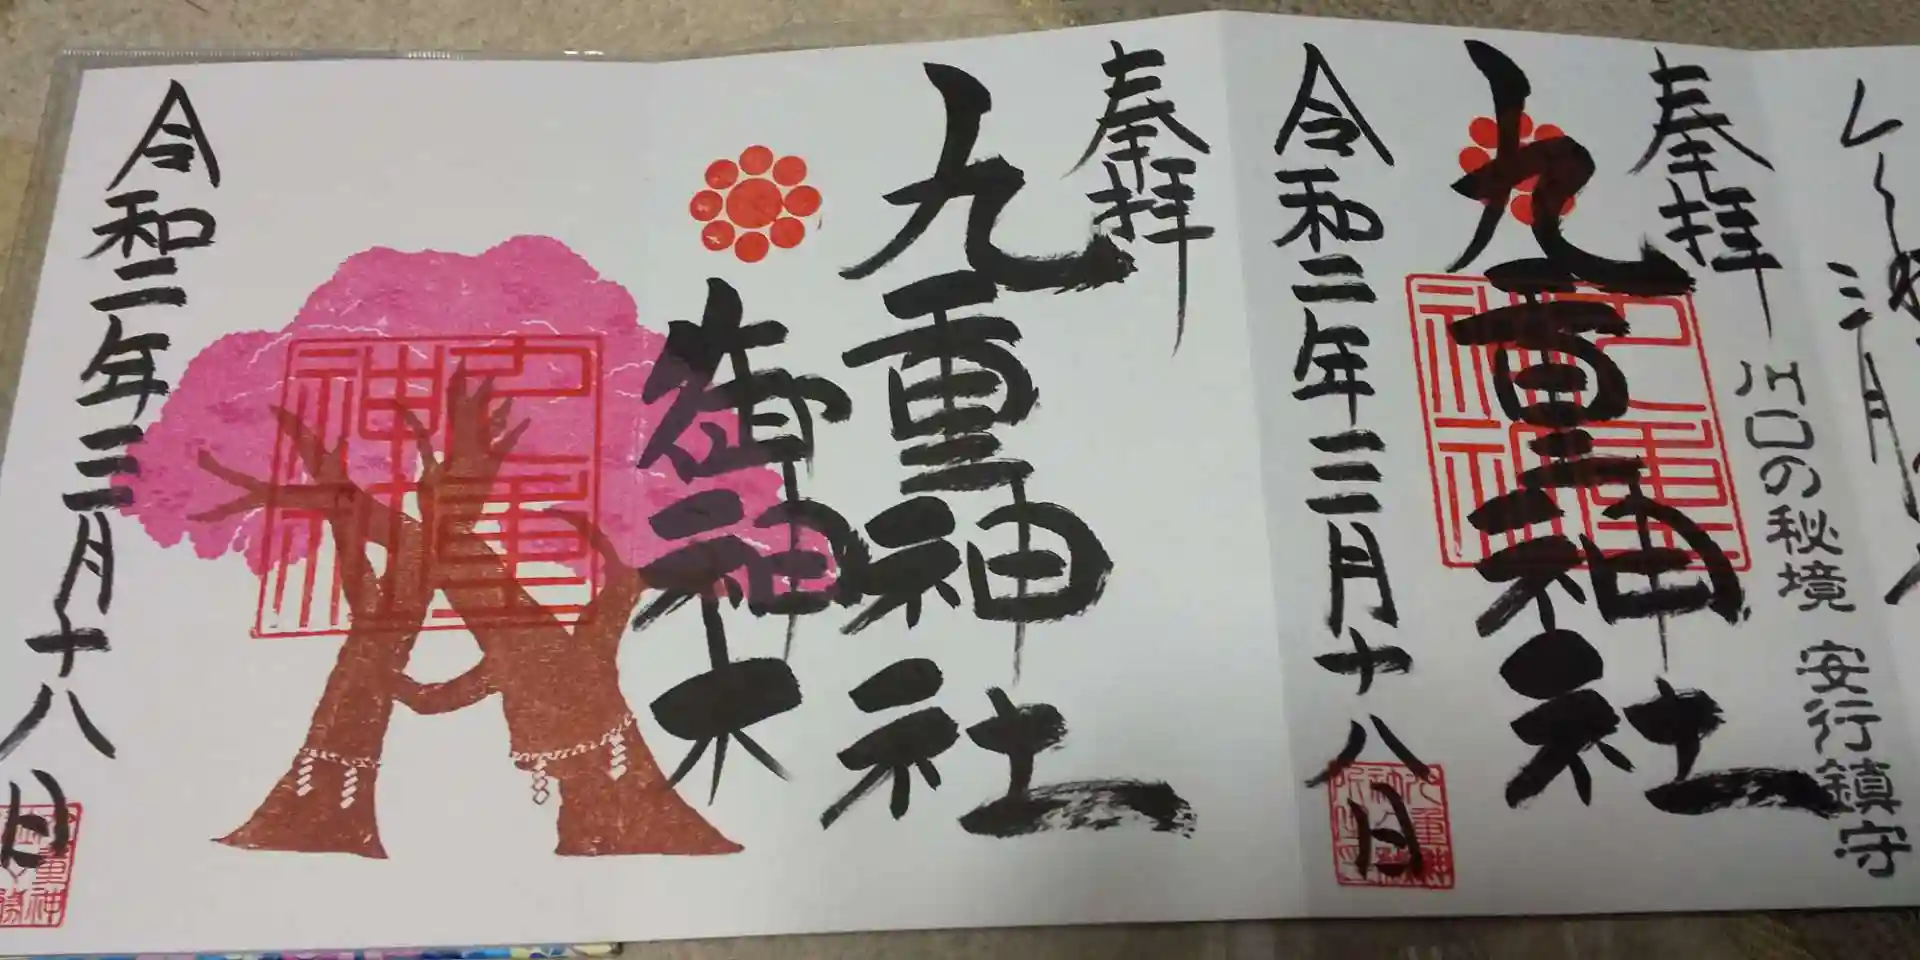 三月
奉拝
川口の秘境 安行鎮守
九重神社
令和二年三月十八日
奉拝
九重神社
御神木
令和二年三月十八日